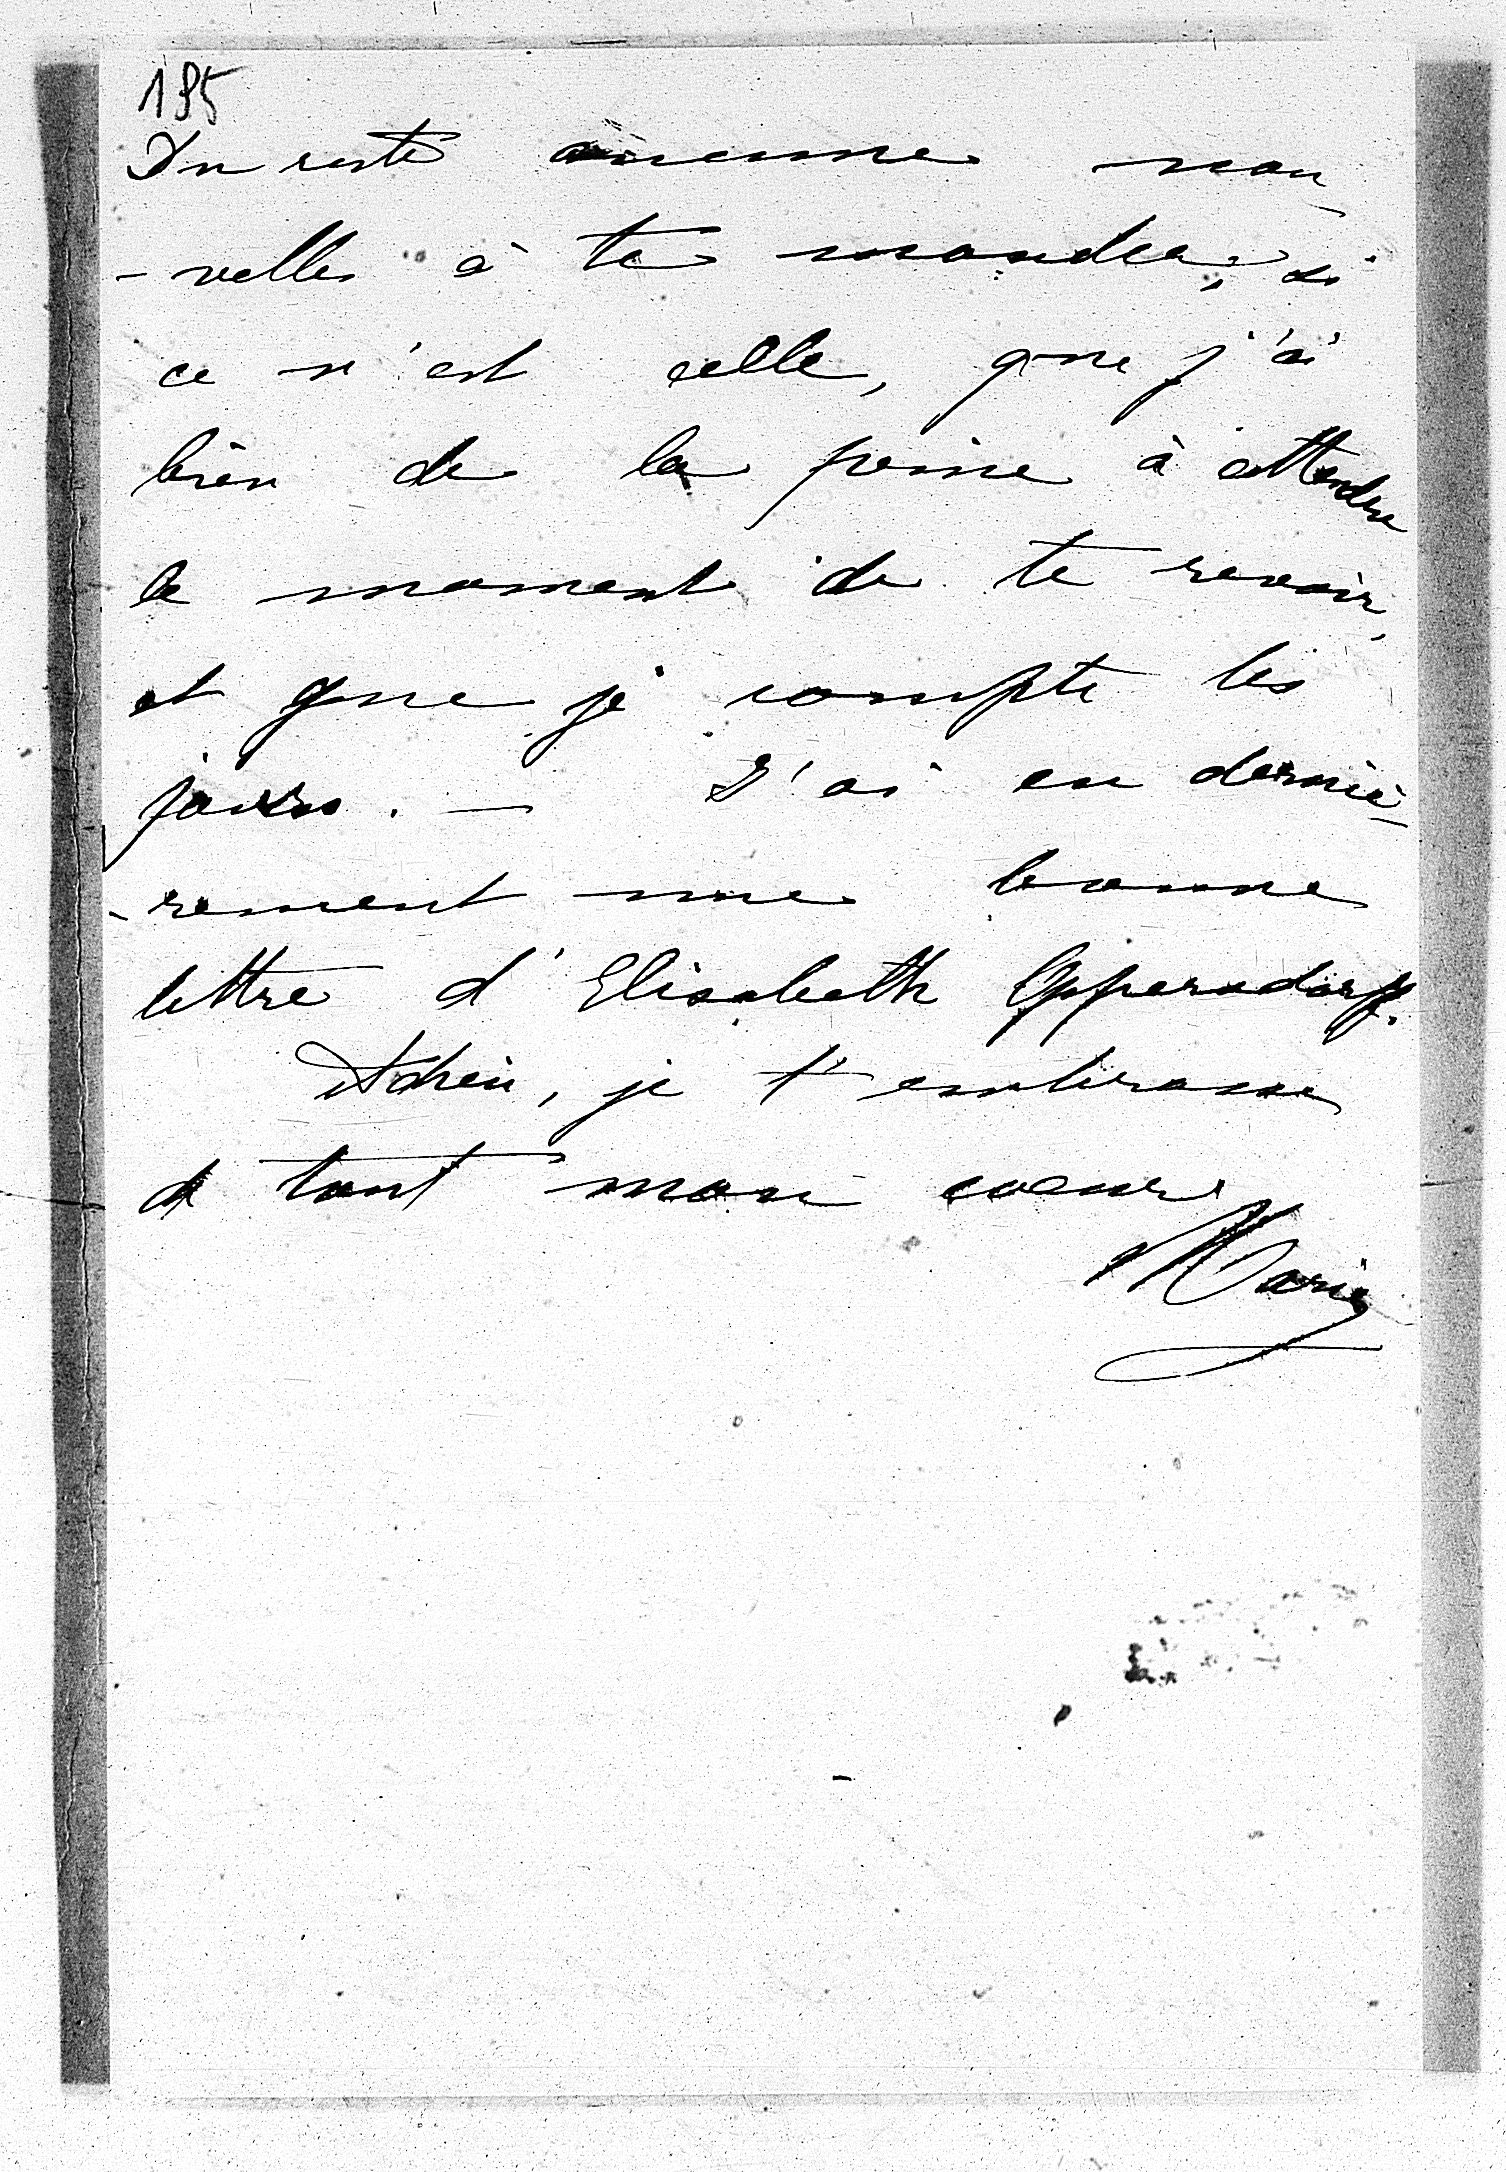 185
Du reste aucune nou
-velle à te mander, si
ce n'est celle, que j'ai
bien de la peine à attendre
le moment de te revoir,
et que je compte les
jours. — J'ai eu derniè-
-rement une bonne
lettre d'Elisabeth Oppersdorff.
Adieu, je t'embrasse
de tout mon coeur
Marie